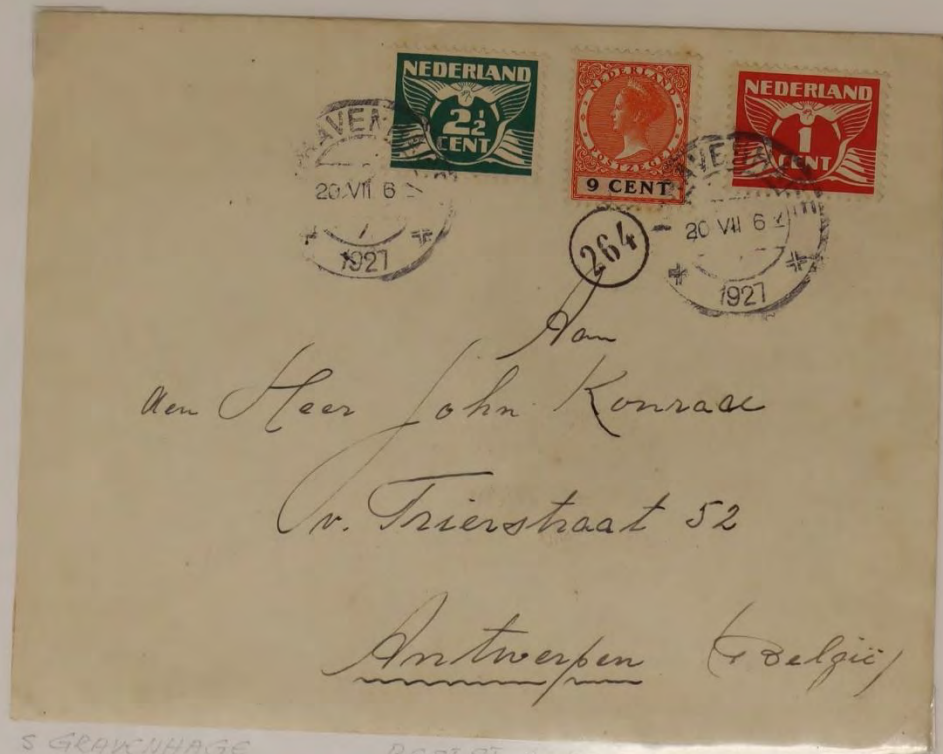 NEDERLAND
2½
CENT
NEDERLAND
POSTZEGEL
9 CENT
NEDERLAND
1
CENT
20 VII 6
1927
20 VII 6
1927
264
Aan
den Heer John Konrad
v. Trierstraat 52
Antwerpen (België)
S GRAVENHAGE